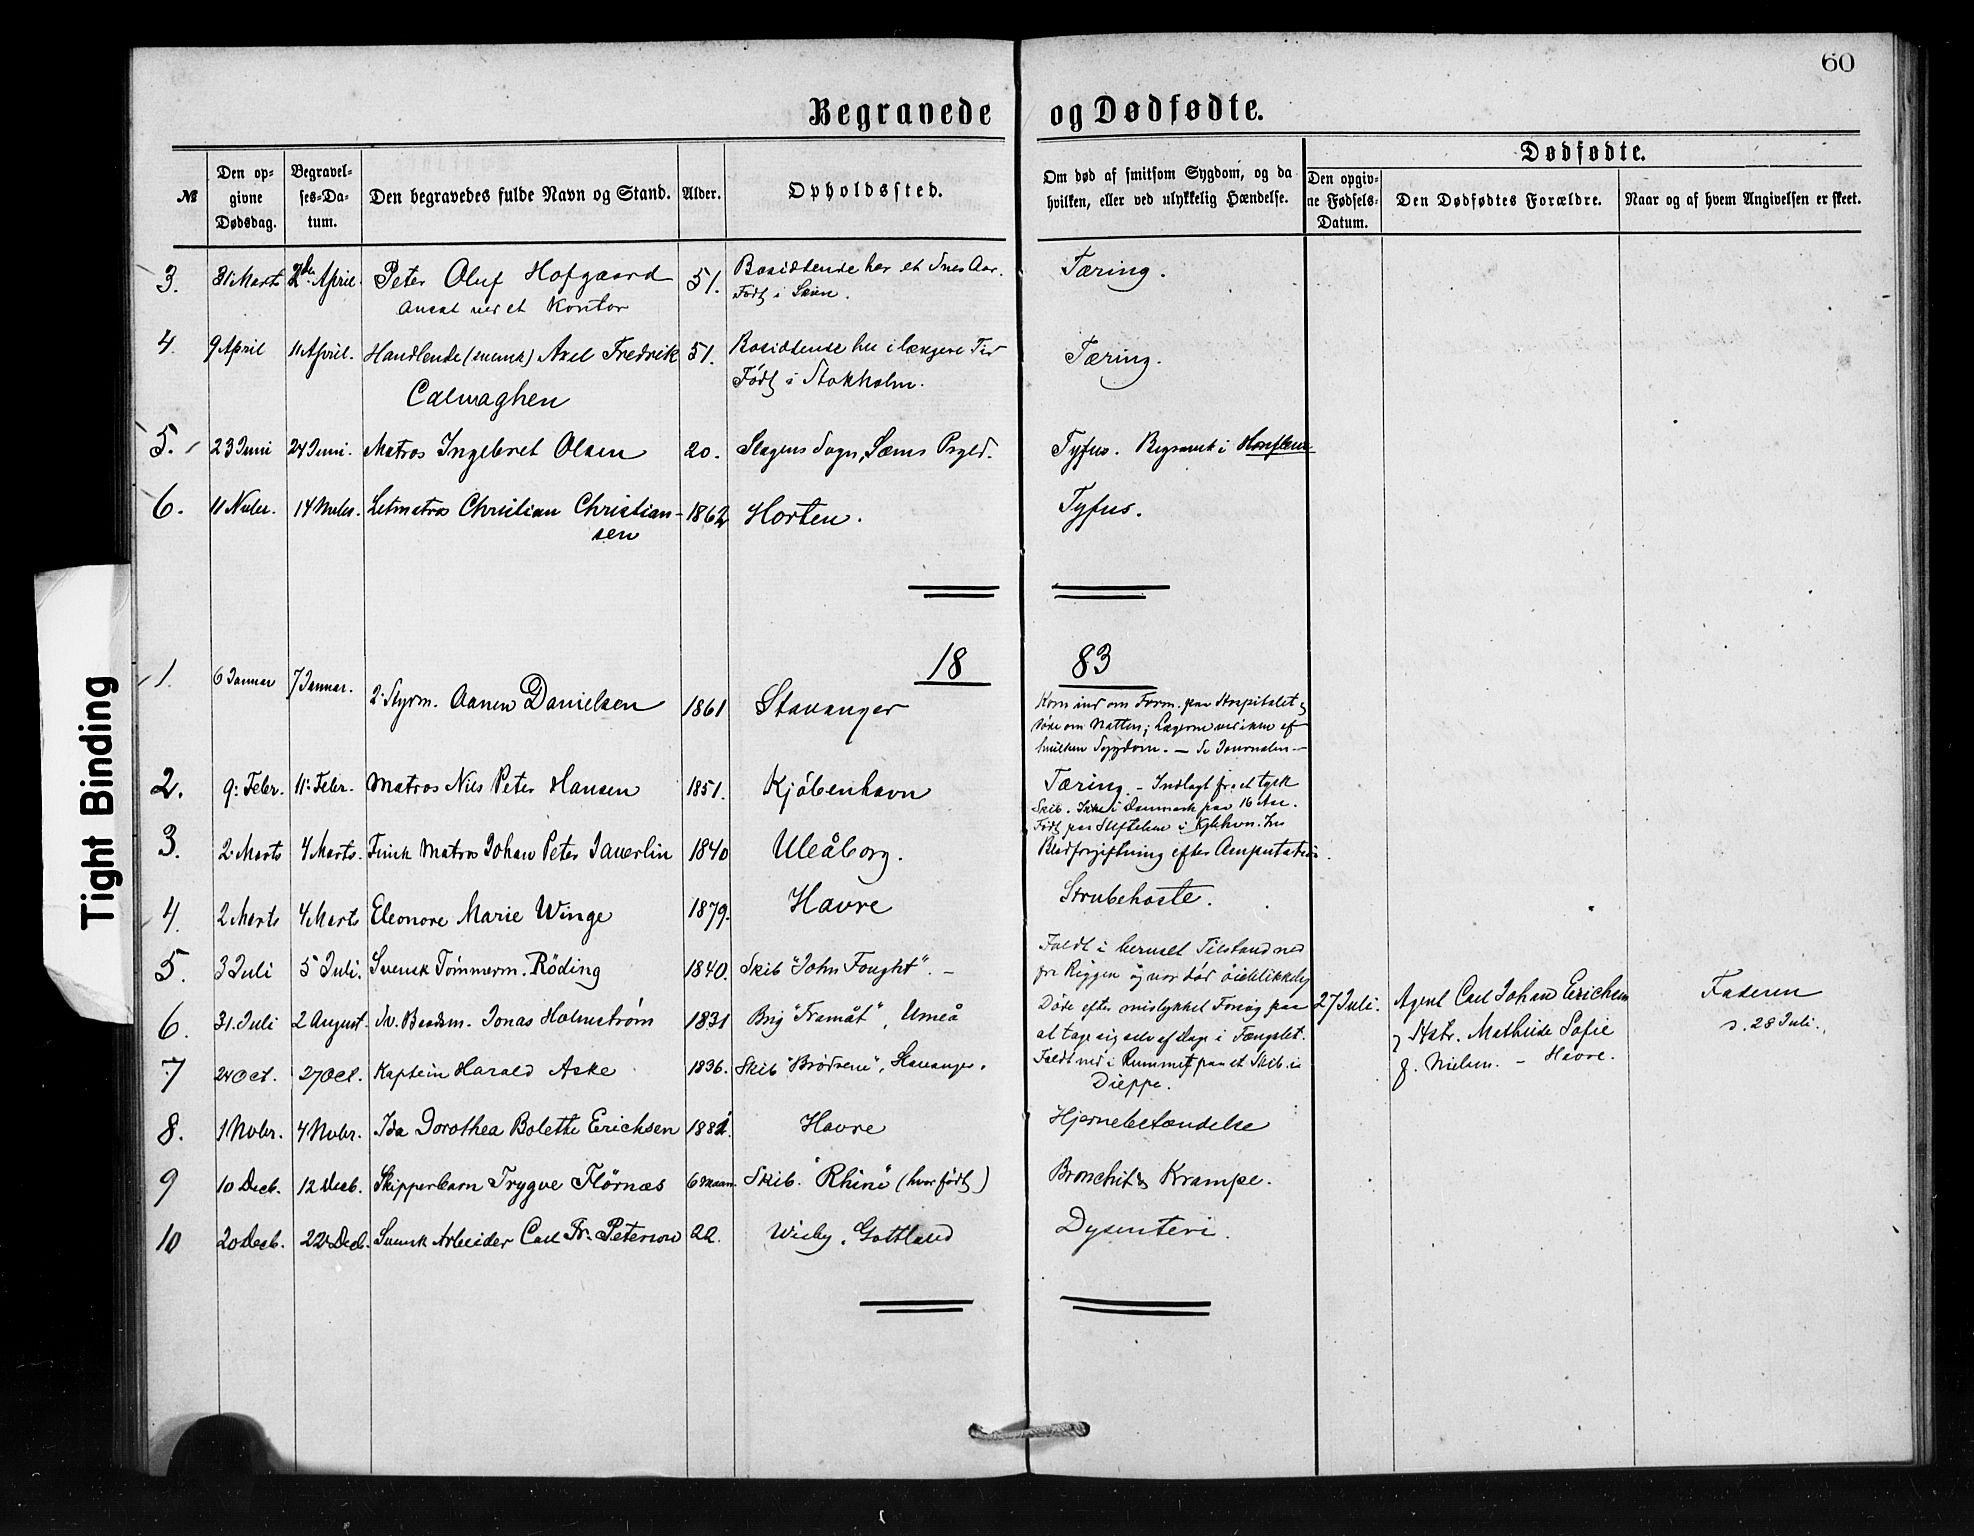 60
Begravede og Dødfødte.
№
Den opgivne Dødsdag.
Begravelses-Datum.
Den begravedes fulde Navn og Stand.
Alder.
Opholdssted.
Om død af smitsom Sygdom, og da hvilken, eller ved ulykkelig Hændelse.
Dødfødte.
Den opgivne Fødsels-Datum.
Den Dødfødtes Forældre.
Naar og af hvem Angivelsen er skeet.
3. 31 Marts 2den April. Peter Oluf Hofgaard 51. Bosiddende her et Aar. Tæring.
Ansat ved et Kontor Født i
4. 9 April 11 April. Handlende (svensk) Axel Fredrik 51. Bosiddende her i længere Tid Tæring.
Calwaghen Født i Stokholm.
5. 23 Juni 24 Juni. Matros Ingebret Olsen 20. Slagens Sogn, Sæms Prgld. Tyfus. Begravet i Honfleur
6. 11 Nvbr. 14 Nvbr. Letmatros Christian Christian- 1862 Horten. Tyfus.
sen
18 83
1. 6 Januar 7 Januar. 2. Styrm. Aanen Danielsen 1861 Stavanger Kom ind om Form. paa Hospitalet &
døde om Natten; Lægerne ved ikke af
hvilken Sygdom. — Se Journalen —
2. 9. Febr. 11. Febr. Matros Nils Peter Hansen 1851. Kjøbenhavn Tæring. - Indlagt fra et tysk
Skib. Ikke i Danmark paa 16 Aar.
Født paa Stiftelsen i Kjbhvn.
3. 2. Marts 4 Marts. Finsk Matros Johan Peter Javerlin 1840 Uleåborg. Blodforgiftning efter Amputation.
4. 2 Marts 4 Marts Eleonore Marie Winge 1879. Havre Strubehoste.
5. 3 Juli 5 Juli. Svensk Tömmerm. Röding 1840. Skib "John Fought". — Faldt i beruset Tilstand ned
fra Riggen og var død øieblikkelig
6. 31. Juli 2 August. Sv. Baadsm. Jonas Holmström 1831 Brig "Framåt", Umeå Døde efter mislykket Forsøg paa
at tage sig selv af Dage i Fængslet.
27 Juli. Agent Carl Johan Erichsen
& Hstr. Mathilde Sofie
f. Nielsen. — Havre.
Faderen
d. 28 Juli.
7 24 Oct. 27 Oct. Kaptein Harald Aske 1836. Skib "Brødrene", Stavanger. Faldt ned i Rummet paa et Skib i
Dieppe.
8. 1 Nvbr. 4 Nvbr. Ida Dorothea Bolette Erichsen Havre Hjernebetændelse
9 10 Decb. 12 Decb. Skipperbarn Trygve Flörnæs 6 Maan. Skib. "Rhine" (hvor født) Bronchit & Krampe.
10 20 Decb. 22 Decb. Svensk Arbeider Carl Fr. Peterson 22. Wisby. Gottland Dysenteri.
Tight Binding